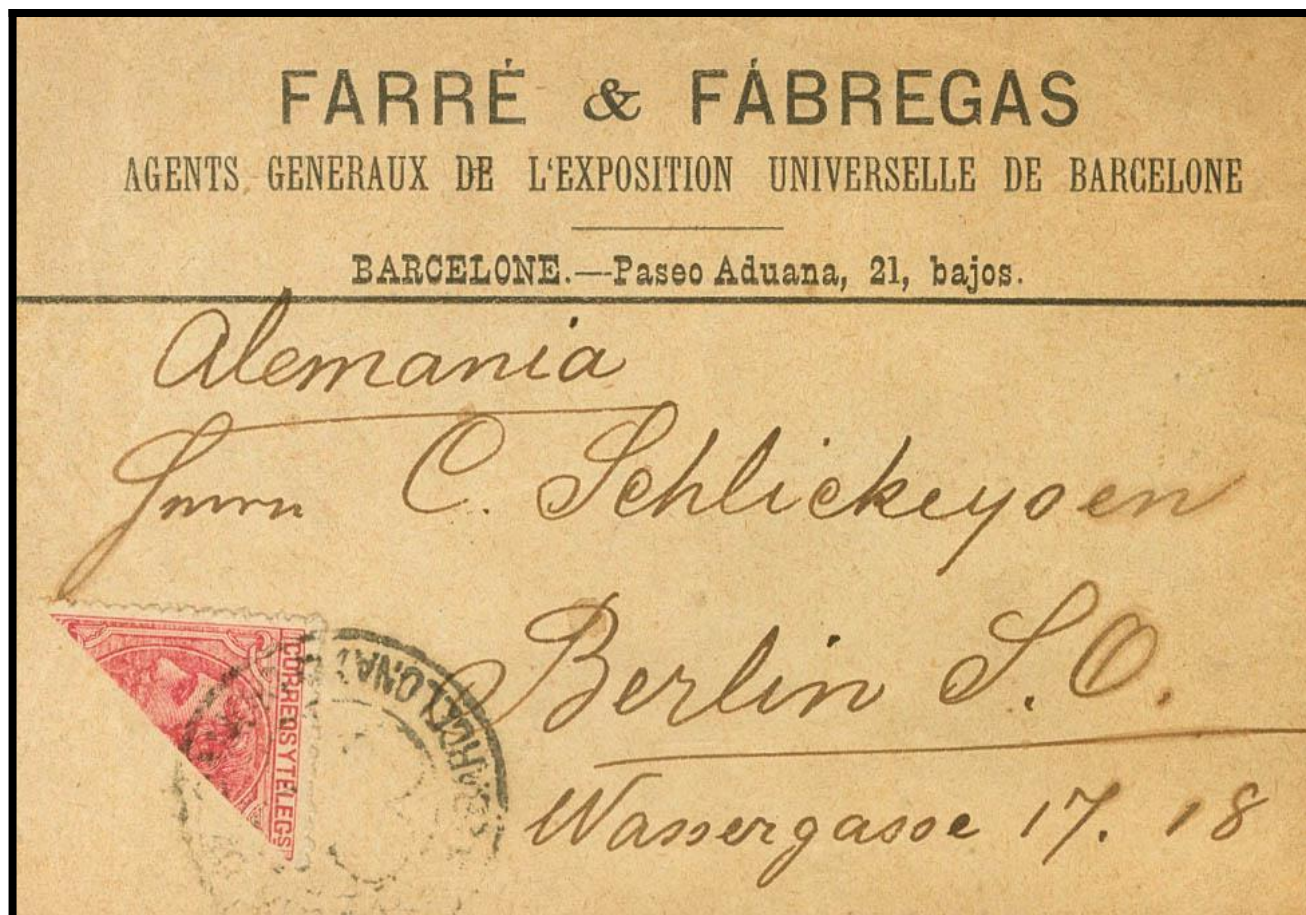 FARRÉ & FÁBREGAS
AGENTS GENERAUX DE L'EXPOSITION UNIVERSELLE DE BARCELONE
BARCELONE.—Paseo Aduana, 21, bajos.
Alemania
Herrn C. Schlickeysen
Berlin S.O.
Wassergasse 17. 18
CORREOS Y TELEGS
BARCELONA